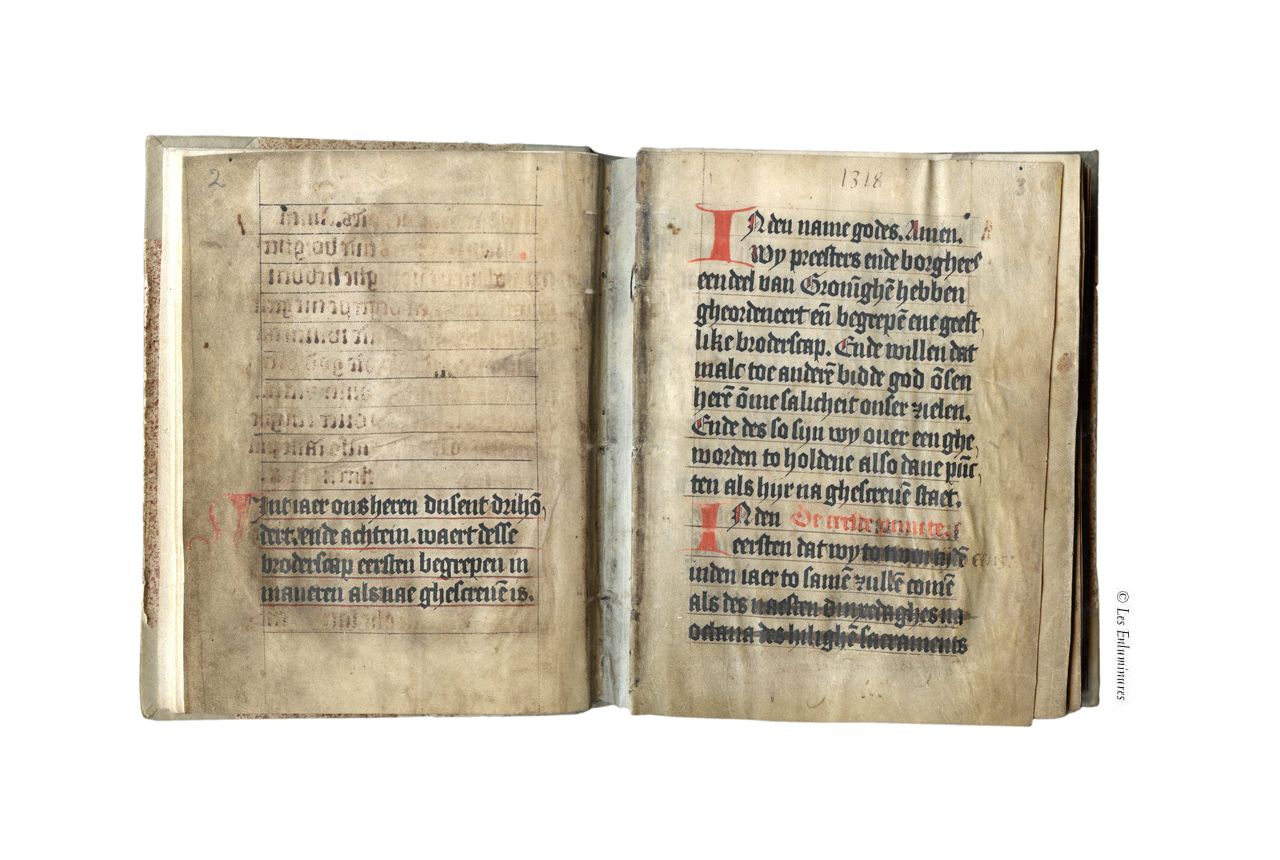 2
Int iaer ons heren dusent drihō
dert. ende achtein. waert desse
broderscap eersten begrepen in
maneren als nae ghescreuē is.
1318
3
INden name godes. Amen.
Wy preesters ende borghers
een deel van Gronīghē hebben
gheordeneert eñ begrepē ene geest
like broderscap. Ende willen dat
malc toe anderē bidde god ōsen
herē ōme salicheit onser zielen.
Ende des so sijn wy ouer een ghe
worden to holdene also dane pūc
ten als hijr na ghescreuē staet.
INden De eerste puncte.
eersten dat wy to twen tidē
inden iaer to samē zullē comē
als des naesten dinxedaghes na
octaua des hilighē sacraments
© Les Enluminures